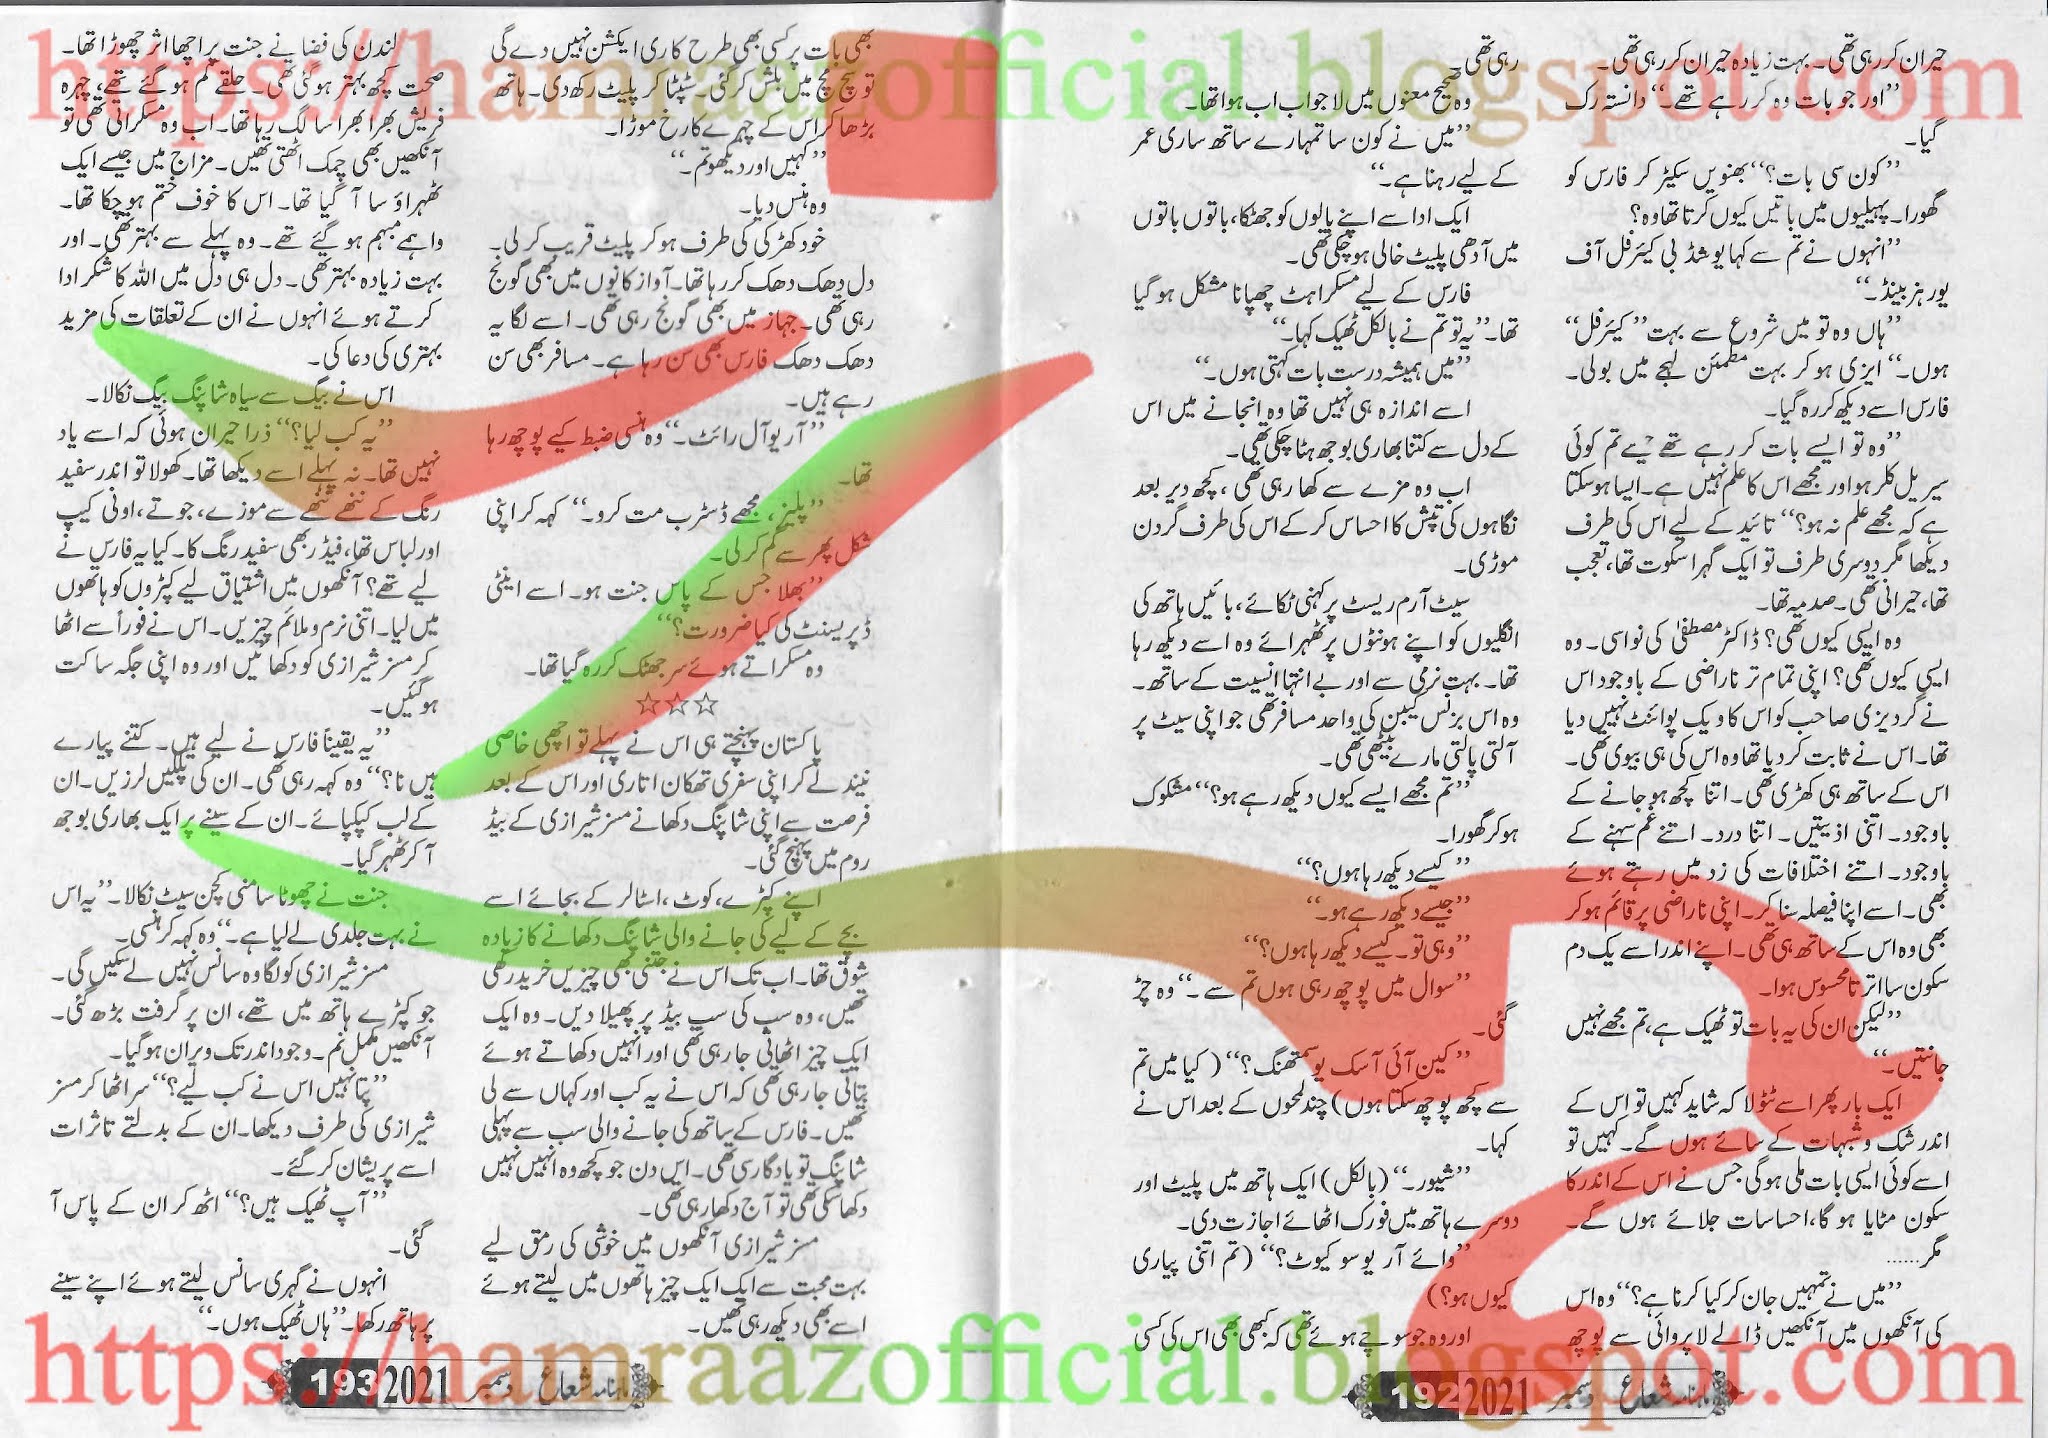 https://hamraazofficial.blogspot.com
حیران کر رہی تھی۔ بہت زیادہ حیران کر رہی تھی۔
’’اور جو بات وہ کر رہے تھے۔‘‘ دانستہ رک
گیا۔
’’کون سی بات؟‘‘ بھنویں سکیڑ کر فارس کو
گھورا۔ پہیلیوں میں باتیں کیوں کرتا تھا وہ؟
’’انہوں نے تم سے کہا یو شڈ بی کیئرفل آف
یور ہزبینڈ۔‘‘
’’ہاں وہ تو میں شروع سے بہت ’’کیئرفل‘‘
ہوں۔‘‘ ایزی ہو کر بہت مطمئن لہجے میں بولی۔
فارس اسے دیکھ کر رہ گیا۔
’’وہ تو ایسے بات کر رہے تھے جیسے تم کوئی
سیریل کلر ہو اور مجھے اس کا علم نہیں ہے۔ ایسا ہو سکتا
ہے کہ مجھے علم نہ ہو؟‘‘ تائید کے لیے اس کی طرف
دیکھا مگر دوسری طرف تو ایک گہرا سکوت تھا، تعجب
تھا، حیرانی تھی۔ صدمہ تھا۔
وہ ایسی کیوں تھی؟ ڈاکٹر مصطفیٰ کی نواسی۔ وہ
ایسی کیوں تھی؟ اپنی تمام تر ناراضی کے باوجود اس
نے گردیزی صاحب کو اس کا ویک پوائنٹ نہیں دیا
تھا۔ اس نے ثابت کر دیا تھا وہ اس کی ہی بیوی تھی۔
اس کے ساتھ ہی کھڑی تھی۔ اتنا کچھ ہو جانے کے
باوجود۔ اتنی اذیتیں۔ اتنا درد۔ اتنے غم سہنے کے
باوجود۔ اتنے اختلافات کی زد میں رہتے ہوئے
بھی۔ اسے اپنا فیصلہ سنا کر۔ اپنی ناراضی پر قائم ہو کر
بھی وہ اس کے ساتھ ہی تھی۔ اپنے اندر اسے یک دم
سکون سا اترتا محسوس ہوا۔
’’لیکن ان کی یہ بات تو ٹھیک ہے، تم مجھے نہیں
جانتیں۔‘‘
ایک بار پھر اسے ٹٹولا کہ شاید کہیں تو اس کے
اندر شک و شبہات کے سائے ہوں گے۔ کہیں تو
اسے کوئی ایسی بات ملی ہو گی جس نے اس کے اندر کا
سکون مٹایا ہو گا، احساسات جلائے ہوں گے۔
مگر......
’’میں نے تمہیں جان کر کیا کرنا ہے؟‘‘ وہ اس
کی آنکھوں میں آنکھیں ڈالے لاپروائی سے پوچھ
رہی تھی۔
وہ صحیح معنوں میں لاجواب اب ہوا تھا۔
’’میں نے کون سا تمہارے ساتھ ساری عمر
کے لیے رہنا ہے۔‘‘
ایک ادا سے اپنے بالوں کو جھٹکا، باتوں باتوں
میں آدھی پلیٹ خالی ہو چکی تھی۔
فارس کے لیے مسکراہٹ چھپانا مشکل ہو گیا
تھا۔ ’’یہ تو تم نے بالکل ٹھیک کہا۔‘‘
’’میں ہمیشہ درست بات کہتی ہوں۔‘‘
اسے اندازہ ہی نہیں تھا وہ انجانے میں اس
کے دل سے کتنا بھاری بوجھ ہٹا چکی تھی۔
اب وہ مزے سے کھا رہی تھی، کچھ دیر بعد
نگاہوں کی تپش کا احساس کر کے اس کی طرف گردن
موڑی۔
سیٹ آرم ریسٹ پر کہنی ٹکائے، بائیں ہاتھ کی
انگلیوں کو اپنے ہونٹوں پر ٹھہرائے وہ اسے دیکھ رہا
تھا۔ بہت نرمی سے اور بے انتہا انسیت کے ساتھ۔
وہ اس بزنس کیبن کی واحد مسافر تھی جو اپنی سیٹ پر
آلتی پالتی مارے بیٹھی تھی۔
’’تم مجھے ایسے کیوں دیکھ رہے ہو؟‘‘ مشکوک
ہو کر گھورا۔
’’کیسے دیکھ رہا ہوں؟‘‘
’’جیسے دیکھ رہے ہو۔‘‘
’’وہی تو۔ کیسے دیکھ رہا ہوں؟‘‘
’’سوال میں پوچھ رہی ہوں تم سے۔‘‘ وہ چڑ
گئی۔
’’کین آئی آسک یو سمتھنگ؟‘‘ (کیا میں تم
سے کچھ پوچھ سکتا ہوں) چند لمحوں کے بعد اس نے
کہا۔
’’شیور۔‘‘ (بالکل) ایک ہاتھ میں پلیٹ اور
دوسرے ہاتھ میں فورک اٹھائے اجازت دی۔
’’وائے آر یو سو کیوٹ؟‘‘ (تم اتنی پیاری
کیوں ہو؟)
اور وہ جو سوچے ہوئے تھی کہ کبھی بھی اس کی کسی
ماہنامہ شعاع دسمبر 2021 192
بھی بات پر کسی بھی طرح کا ری ایکشن نہیں دے گی
تو سچ مچ میں بلش کر گئی۔ سٹپٹا کر پلیٹ رکھ دی۔ ہاتھ
بڑھا کر اس کے چہرے کا رخ موڑا۔
’’کہیں اور دیکھو تم۔‘‘
وہ ہنس دیا۔
خود کھڑکی کی طرف ہو کر پلیٹ قریب کر لی۔
دل دھک دھک کر رہا تھا۔ آواز کانوں میں بھی گونج
رہی تھی۔ جہاز میں بھی گونج رہی تھی۔ اسے لگا یہ
دھک دھک فارس بھی سن رہا ہے۔ مسافر بھی سن
رہے ہیں۔
’’آر یو آل رائٹ۔‘‘ وہ ہنسی ضبط کیے پوچھ رہا
تھا۔
’’پلیز، مجھے ڈسٹرب مت کرو۔‘‘ کہہ کر اپنی
شکل پھر سے گم کر لی۔
’’بھلا جس کے پاس جنت ہو۔ اسے اینٹی
ڈپریسنٹ کی کیا ضرورت؟‘‘
وہ مسکراتے ہوئے سر جھٹک کر رہ گیا تھا۔
☆☆☆
پاکستان پہنچتے ہی اس نے پہلے تو اچھی خاصی
نیند لے کر اپنی سفری تھکان اتاری اور اس کے بعد
فرصت سے اپنی شاپنگ دکھانے مسز شیرازی کے بیڈ
روم میں پہنچ گئی۔
اپنے کپڑے، کوٹ، اسٹالر کے بجائے اسے
بچے کے لیے کی جانے والی شاپنگ دکھانے کا زیادہ
شوق تھا۔ اب تک اس نے جتنی بھی چیزیں خرید رکھی
تھیں، وہ سب کی سب بیڈ پر پھیلا دیں۔ وہ ایک
ایک چیز اٹھاتی جا رہی تھی اور انہیں دکھاتے ہوئے
بتاتی جا رہی تھی کہ اس نے یہ کب اور کہاں سے لی
تھیں۔ فارس کے ساتھ کی جانے والی سب سے پہلی
شاپنگ تو یادگار سی تھی۔ اس دن جو کچھ وہ انہیں نہیں
دکھا سکی تھی تو آج دکھا رہی تھی۔
مسز شیرازی آنکھوں میں خوشی کی رمق لیے
بہت محبت سے ایک ایک چیز ہاتھوں میں لیتے ہوئے
اسے بھی دیکھ رہی تھیں۔
لندن کی فضا نے جنت پر اچھا اثر چھوڑا تھا۔
صحت کچھ بہتر ہو گئی تھی۔ حلقے کم ہو گئے تھے، چہرہ
فریش بھرا بھرا سا لگ رہا تھا۔ اب وہ مسکراتی تھی تو
آنکھیں بھی چمک اٹھتی تھیں۔ مزاج میں جیسے ایک
ٹھہراؤ سا آ گیا تھا۔ اس کا خوف ختم ہو چکا تھا۔
واہمے مبہم ہو گئے تھے۔ وہ پہلے سے بہتر تھی۔ اور
بہت زیادہ بہتر تھی۔ دل ہی دل میں اللہ کا شکر ادا
کرتے ہوئے انہوں نے ان کے تعلقات کی مزید
بہتری کی دعا کی۔
اس نے بیگ سے سیاہ شاپنگ بیگ نکالا۔
’’یہ کب لیا؟‘‘ ذرا حیران ہوئی کہ اسے یاد
نہیں تھا۔ نہ پہلے اسے دیکھا تھا۔ کھولا تو اندر سفید
رنگ کے ننھے ننھے سے موزے، جوتے، اونی کیپ
اور لباس تھا، فیڈر بھی سفید رنگ کا۔ کیا یہ فارس نے
لیے تھے؟ آنکھوں میں اشتیاق لیے کپڑوں کو ہاتھوں
میں لیا۔ اتنی نرم و ملائم چیزیں۔ اس نے فوراً سے اٹھا
کر مسز شیرازی کو دکھائیں اور وہ اپنی جگہ ساکت
ہو گئیں۔
’’یہ یقیناً فارس نے لیے ہیں۔ کتنے پیارے
ہیں نا؟‘‘ وہ کہہ رہی تھی۔ ان کی پلکیں لرزیں۔ ان
کے لب کپکپائے۔ ان کے سینے پر ایک بھاری بوجھ
آ کر ٹھہر گیا۔
جنت نے چھوٹا سا منی کچن سیٹ نکالا۔ ’’یہ اس
نے بہت جلدی لے لیا ہے۔‘‘ وہ کہہ کر ہنسی۔
مسز شیرازی کو لگا وہ سانس نہیں لے سکیں گی۔
جو کپڑے ہاتھ میں تھے، ان پر گرفت بڑھ گئی۔
آنکھیں مکمل نم۔ وجود اندر تک ویران ہو گیا۔
’’پتا نہیں اس نے کب لیے؟‘‘ سر اٹھا کر مسز
شیرازی کی طرف دیکھا۔ ان کے بدلتے تاثرات
اسے پریشان کر گئے۔
’’آپ ٹھیک ہیں؟‘‘ اٹھ کر ان کے پاس آ
گئی۔
انہوں نے گہری سانس لیتے ہوئے اپنے سینے
پر ہاتھ رکھا۔ ’’ہاں ٹھیک ہوں۔‘‘
ماہنامہ شعاع دسمبر 2021 193
https://hamraazofficial.blogspot.com